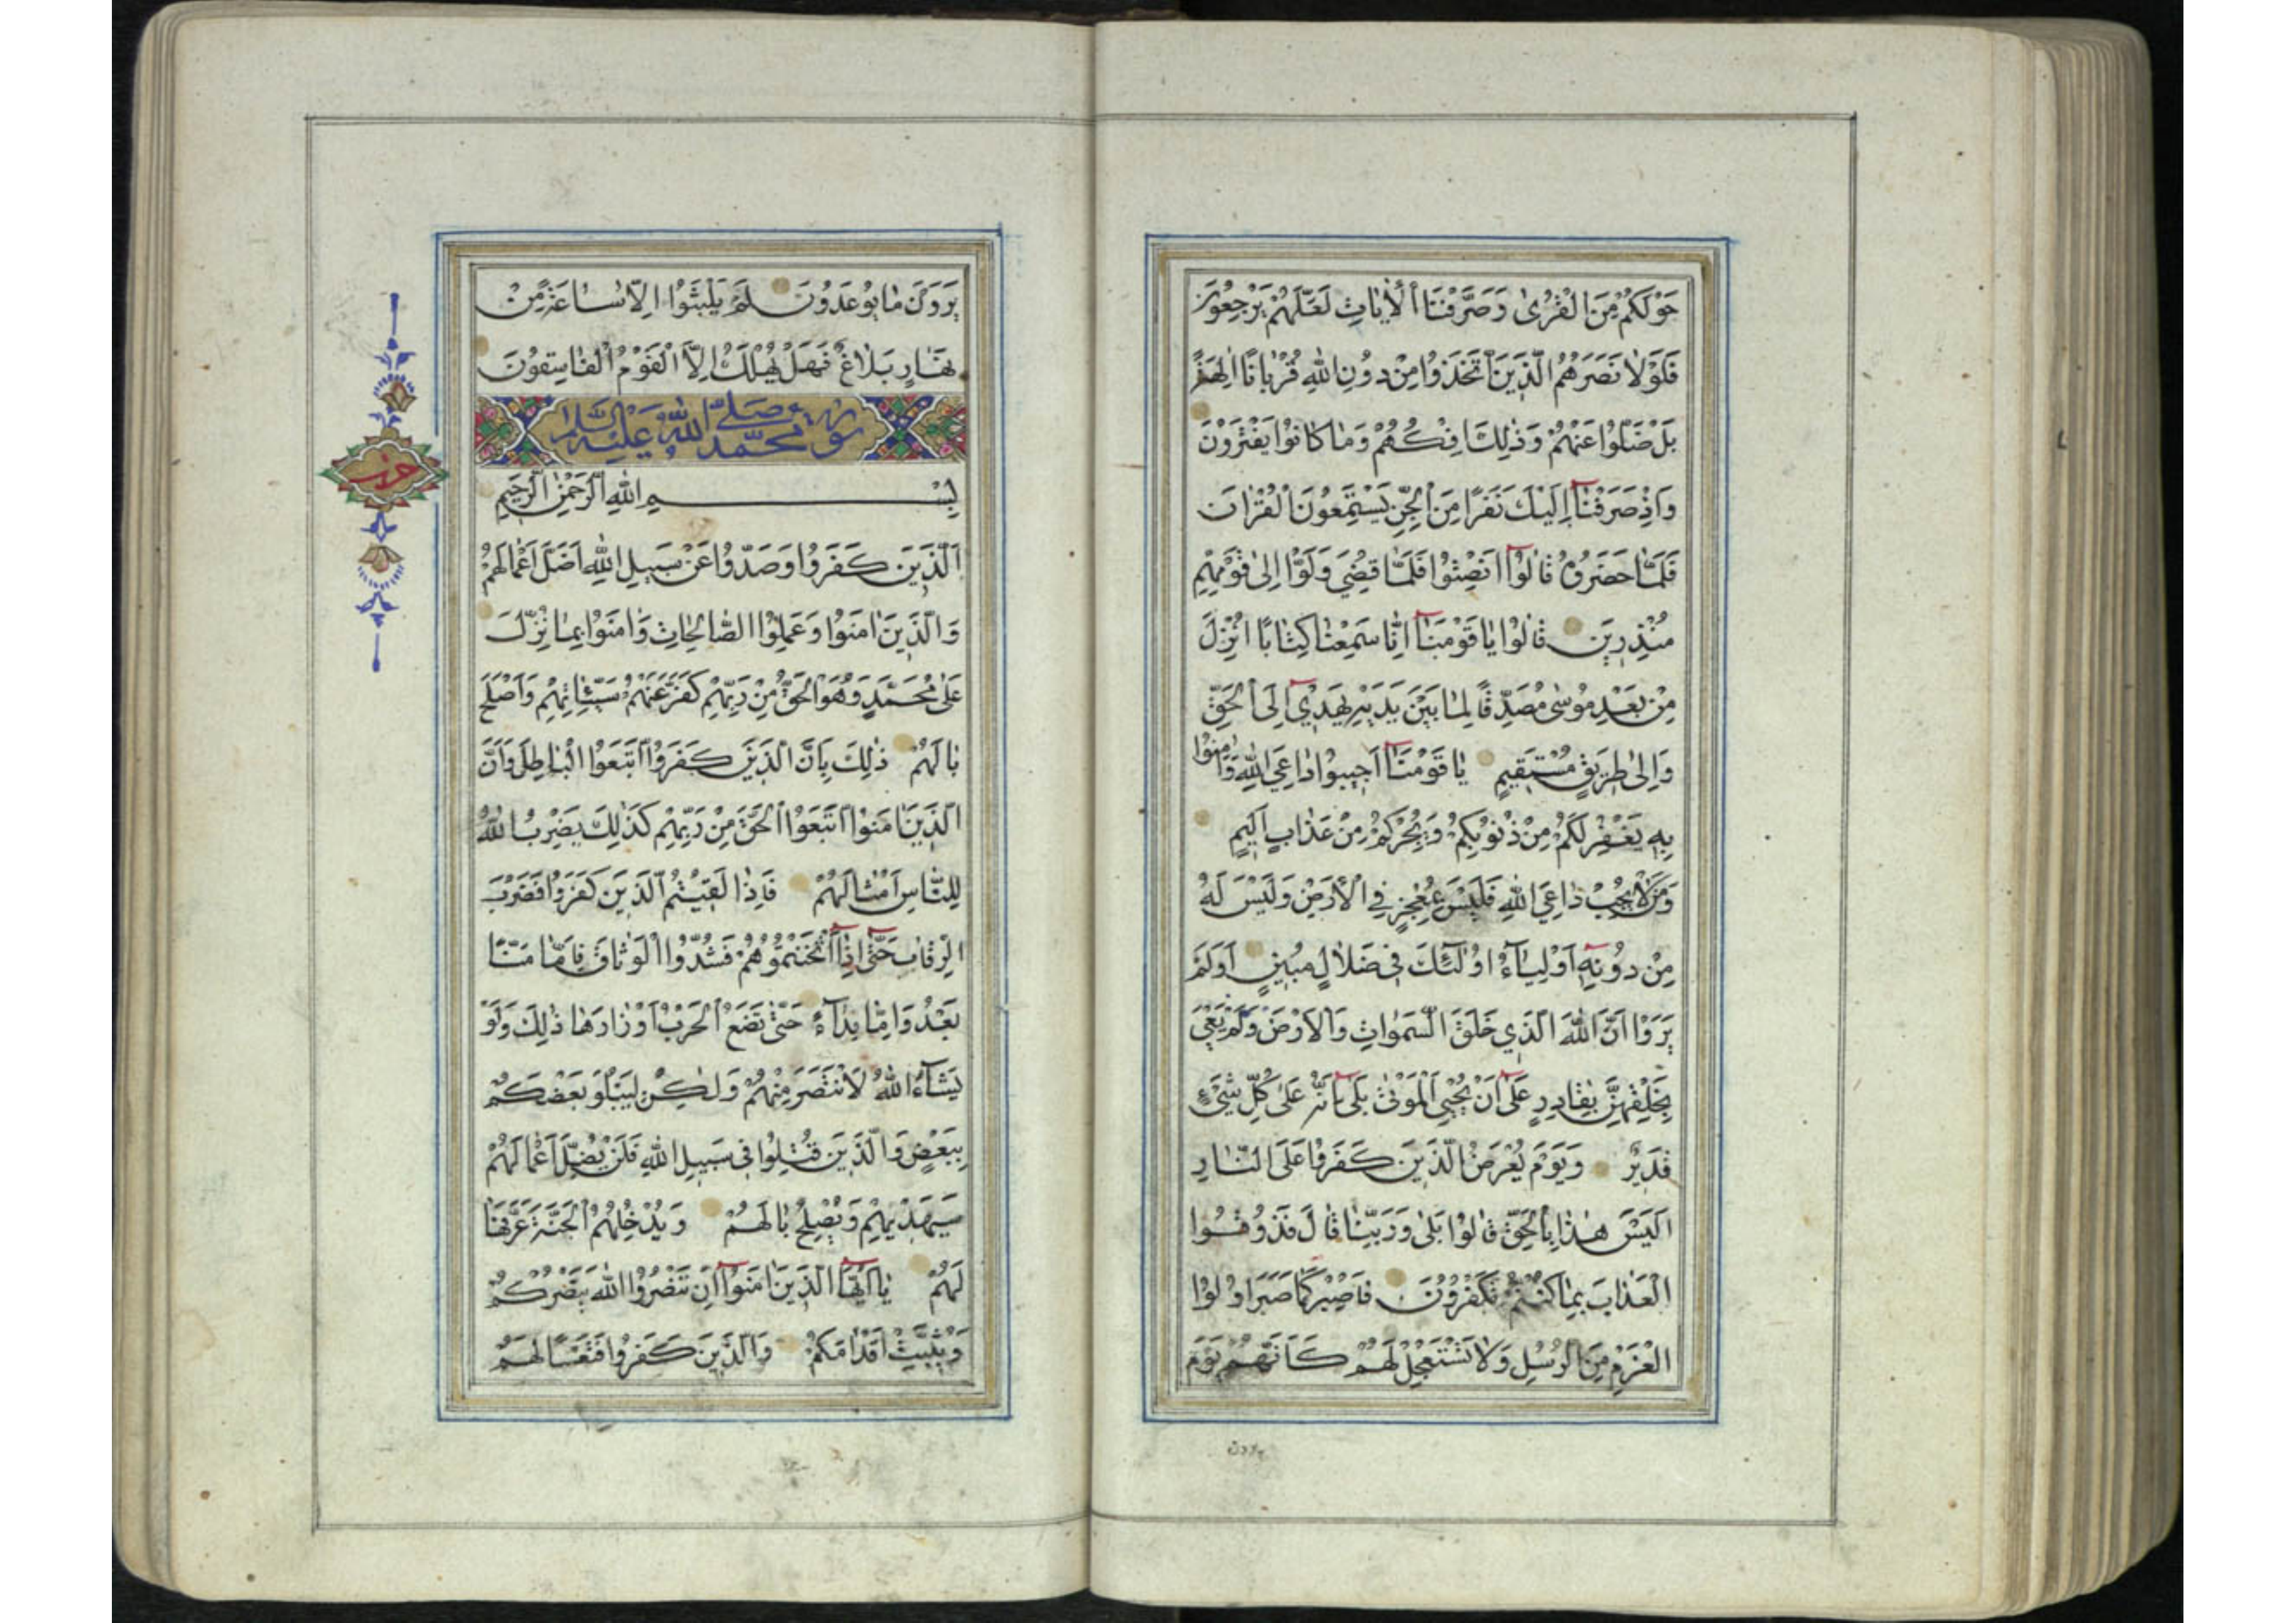 حَوْلَكُمْ مِنَ الْقُرٰى وَصَرَّفْنَا الْاٰيَاتِ لَعَلَّهُمْ يَرْجِعُونَ
فَلَوْلَا نَصَرَهُمُ الَّذِينَ اتَّخَذُوا مِنْ دُونِ اللّٰهِ قُرْبَانًا اٰلِهَةً
بَلْ ضَلُّوا عَنْهُمْ وَذٰلِكَ اِفْكُهُمْ وَمَا كَانُوا يَفْتَرُونَ
وَاِذْ صَرَفْنَآ اِلَيْكَ نَفَرًا مِنَ الْجِنِّ يَسْتَمِعُونَ الْقُرْاٰنَ
فَلَمَّا حَضَرُوهُ قَالُوٓا اَنْصِتُوا فَلَمَّا قُضِيَ وَلَّوْا اِلٰى قَوْمِهِمْ
مُنْذِرِينَ قَالُوا يَا قَوْمَنَآ اِنَّا سَمِعْنَا كِتَابًا اُنْزِلَ
مِنْ بَعْدِ مُوسٰى مُصَدِّقًا لِمَا بَيْنَ يَدَيْهِ يَهْدِيٓ اِلَى الْحَقِّ
وَاِلٰى طَرِيقٍ مُسْتَقِيمٍ يَا قَوْمَنَآ اَجِيبُوا دَاعِيَ اللّٰهِ وَاٰمِنُوا
بِهِ يَغْفِرْ لَكُمْ مِنْ ذُنُوبِكُمْ وَيُجِرْكُمْ مِنْ عَذَابٍ اَلِيمٍ
وَمَنْ لَا يُجِبْ دَاعِيَ اللّٰهِ فَلَيْسَ بِمُعْجِزٍ فِي الْاَرْضِ وَلَيْسَ لَهُ
مِنْ دُونِهِٓ اَوْلِيَآءُ اُولٰٓئِكَ فِي ضَلَالٍ مُبِينٍ اَوَلَمْ
يَرَوْا اَنَّ اللّٰهَ الَّذِي خَلَقَ السَّمٰوَاتِ وَالْاَرْضَ وَلَمْ يَعْيَ
بِخَلْقِهِنَّ بِقَادِرٍ عَلٰٓى اَنْ يُحْيِيَ الْمَوْتٰى بَلٰٓى اِنَّهُ عَلٰى كُلِّ شَيْءٍ
قَدِيرٌ وَيَوْمَ يُعْرَضُ الَّذِينَ كَفَرُوا عَلَى النَّارِ
اَلَيْسَ هٰذَا بِالْحَقِّ قَالُوا بَلٰى وَرَبِّنَا قَالَ فَذُوقُوا
الْعَذَابَ بِمَا كُنْتُمْ تَكْفُرُونَ فَاصْبِرْ كَمَا صَبَرَ اُولُوا
الْعَزْمِ مِنَ الرُّسُلِ وَلَا تَسْتَعْجِلْ لَهُمْ كَاَنَّهُمْ يَوْمَ
يرون
يَرَوْنَ مَا يُوعَدُونَ لَمْ يَلْبَثُوا اِلَّا سَاعَةً مِنْ
نَهَارٍ بَلَاغٌ فَهَلْ يُهْلَكُ اِلَّا الْقَوْمُ الْفَاسِقُونَ
سورة محمّد صلّى اللّٰه عليه وسلّم
حزب
بِسْمِ اللّٰهِ الرَّحْمٰنِ الرَّحِيمِ
اَلَّذِينَ كَفَرُوا وَصَدُّوا عَنْ سَبِيلِ اللّٰهِ اَضَلَّ اَعْمَالَهُمْ
وَالَّذِينَ اٰمَنُوا وَعَمِلُوا الصَّالِحَاتِ وَاٰمَنُوا بِمَا نُزِّلَ
عَلٰى مُحَمَّدٍ وَهُوَ الْحَقُّ مِنْ رَبِّهِمْ كَفَّرَ عَنْهُمْ سَيِّئَاتِهِمْ وَاَصْلَحَ
بَالَهُمْ ذٰلِكَ بِاَنَّ الَّذِينَ كَفَرُوا اتَّبَعُوا الْبَاطِلَ وَاَنَّ
الَّذِينَ اٰمَنُوا اتَّبَعُوا الْحَقَّ مِنْ رَبِّهِمْ كَذٰلِكَ يَضْرِبُ اللّٰهُ
لِلنَّاسِ اَمْثَالَهُمْ فَاِذَا لَقِيتُمُ الَّذِينَ كَفَرُوا فَضَرْبَ
الرِّقَابِ حَتّٰٓى اِذَآ اَثْخَنْتُمُوهُمْ فَشُدُّوا الْوَثَاقَ فَاِمَّا مَنًّا
بَعْدُ وَاِمَّا فِدَآءً حَتّٰى تَضَعَ الْحَرْبُ اَوْزَارَهَا ذٰلِكَ وَلَوْ
يَشَآءُ اللّٰهُ لَانْتَصَرَ مِنْهُمْ وَلٰكِنْ لِيَبْلُوَ بَعْضَكُمْ
بِبَعْضٍ وَالَّذِينَ قُتِلُوا فِي سَبِيلِ اللّٰهِ فَلَنْ يُضِلَّ اَعْمَالَهُمْ
سَيَهْدِيهِمْ وَيُصْلِحُ بَالَهُمْ وَيُدْخِلُهُمُ الْجَنَّةَ عَرَّفَهَا
لَهُمْ يَآ اَيُّهَا الَّذِينَ اٰمَنُوٓا اِنْ تَنْصُرُوا اللّٰهَ يَنْصُرْكُمْ
وَيُثَبِّتْ اَقْدَامَكُمْ وَالَّذِينَ كَفَرُوا فَتَعْسًا لَهُمْ